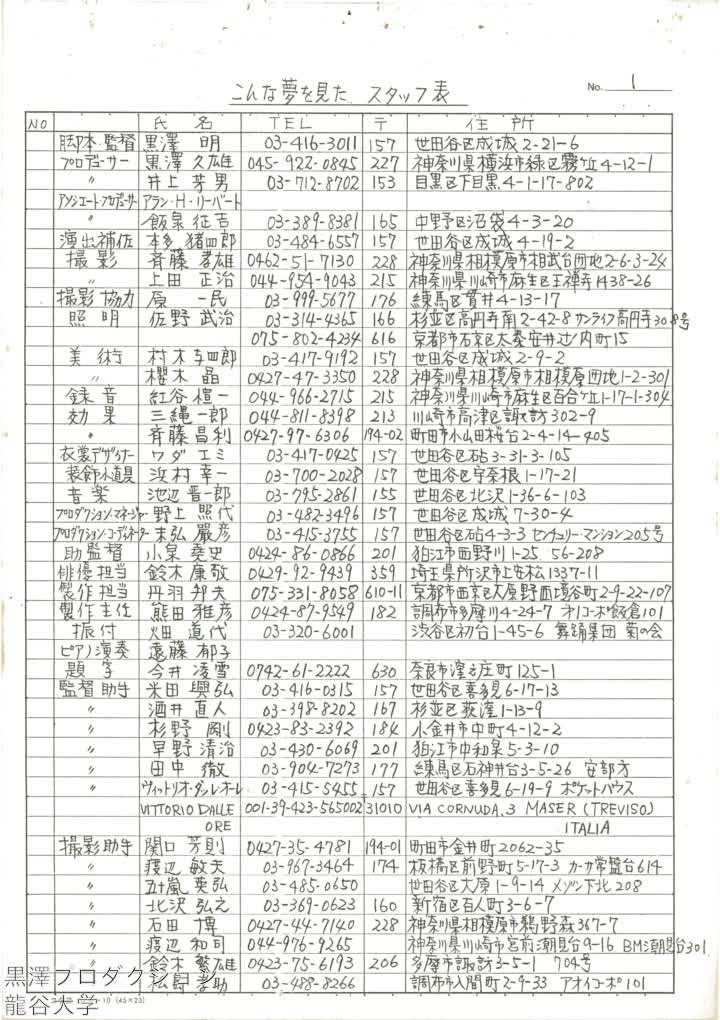 こんな夢を見た スタッフ表
No. 1
NO 氏名 TEL 〒 住所
脚本・監督 黒澤 明 03-416-3011 157 世田谷区成城2-21-6
プロデューサー 黒澤久雄 045-922-0845 227 神奈川県横浜市緑区霧ケ丘4-12-1
〃 井上芳男 03-712-8702 153 目黒区下目黒4-1-17-802
アソシエートプロデューサー アラン・H・リーバート
〃 飯泉征吉 03-389-8381 165 中野区沼袋4-3-20
演出補佐 本多猪四郎 03-484-6557 157 世田谷区成城4-19-2
撮影 斉藤孝雄 0462-51-7130 228 神奈川県相模原市相武台団地2-6-3-24
〃 上田正治 044-954-9043 215 神奈川県川崎市麻生区王禅寺1438-26
撮影協力 原 一民 03-999-5677 176 練馬区貫井4-13-17
照明 佐野武治 03-314-4365 166 杉並区高円寺南2-42-8 サンライフ高円寺308号
075-802-4234 616 京都市右京区太秦安井辻ノ内町15
美術 村木与四郎 03-417-9192 157 世田谷区成城2-9-2
〃 櫻木 晶 0427-47-3350 228 神奈川県相模原市相模原団地1-2-301
録音 紅谷愃一 044-966-2715 215 神奈川県川崎市麻生区百合ケ丘1-17-1-304
効果 三縄一郎 044-811-8398 213 川崎市高津区諏訪302-9
〃 斉藤昌利 0427-97-6306 194-02 町田市小山田桜台2-4-14-405
衣裳デザイナー ワダ エミ 03-417-0425 157 世田谷区砧3-31-3-105
装飾小道具 浜村幸一 03-700-2028 157 世田谷区宇奈根1-17-21
音楽 池辺晋一郎 03-795-2861 155 世田谷区北沢1-36-6-103
プロダクション・マネージャー 野上照代 03-482-3496 157 世田谷区成城7-30-4
プロダクション・コーディネーター 末弘厳彦 03-415-3755 157 世田谷区砧4-3-3 センチュリーマンション205号
助監督 小泉堯史 0424-86-0866 201 狛江市西野川1-25 56-208
俳優担当 鈴木康敬 0429-92-9439 359 埼玉県所沢市上安松1337-11
製作担当 丹羽邦夫 075-331-8058 610-11 京都市西京区大原野西境谷町2-9-22-107
製作主任 熊田雅彦 0424-87-9549 182 調布市多摩川4-24-7 オリノコーポ飯倉101
振付 畑 道代 03-320-6001 渋谷区初台1-45-6 舞踊集団 菊の会
ピアノ演奏 遠藤郁子
題字 今井凌雪 0742-61-2222 630 奈良市窪之庄町125-1
監督助手 米田興弘 03-416-0315 157 世田谷区喜多見6-17-13
〃 酒井直人 03-398-8202 167 杉並区荻窪1-13-9
〃 杉野 剛 0423-83-2392 184 小金井市中町4-12-2
〃 早野清治 03-430-6069 201 狛江市中和泉5-3-10
〃 田中 徹 03-904-7273 177 練馬区石神井台3-5-26 安部方
〃 ヴィットリオ・ダッレ・オーレ 03-415-5455 157 世田谷区喜多見6-19-9 ポケットハウス
VITTORIO DALLE 001-39-423-565002 31010 VIA CORNUDA.3 MASER (TREVISO)
ORE ITALIA
撮影助手 関口芳則 0427-35-4781 194-01 町田市金井町2062-35
〃 渡辺敏夫 03-967-3464 174 板橋区前野町5-17-3 カーサ常盤台614
〃 五十嵐英弘 03-485-0650 世田谷区大原1-9-14 メゾン下北208
〃 北沢弘之 03-369-0623 160 新宿区百人町3-6-7
〃 石田 博 0427-44-7140 228 神奈川県相模原市鵜野森367-7
〃 渡辺和司 044-976-9265 神奈川県川崎市宮前潮見台9-16 BM潮見台301
〃 鈴木繁雄 0423-75-6193 206 多摩市諏訪3-5-1 704号
孝助 03-488-8266 調布市入間町2-9-33 アオイコーポ101
黒澤プロダクション
龍谷大学
-10 (45×23)